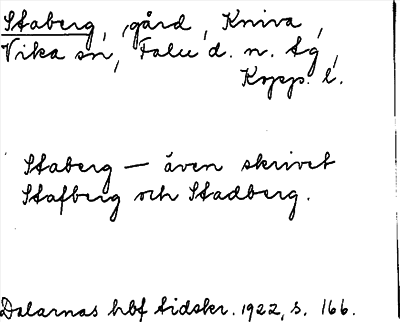 Staberg, gård, Kniva,
Vika sn, Falu d. n. tg,
Kopp. l.
Staberg — även skrivet
Stafberg och Stadberg.
Dalarnas hbf tidskr. 1922, s. 166.